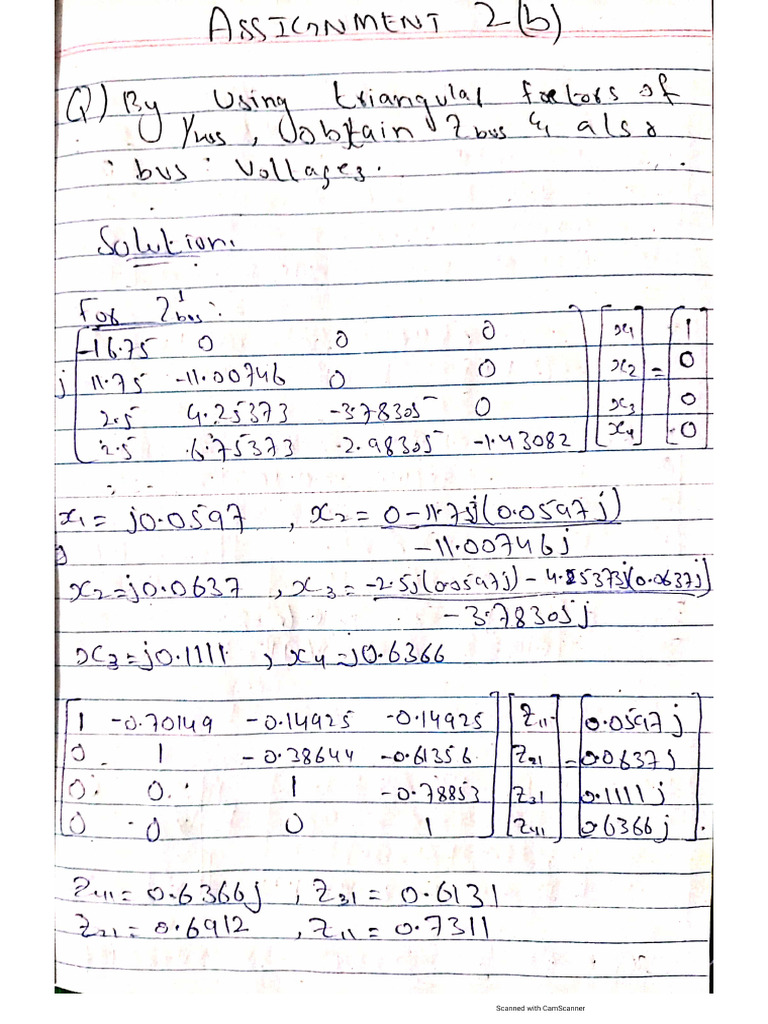 ASSIGNMENT 2(b)
Q) By using triangular factors of
Ybus, obtain Zbus & also
bus voltages.
Solution.
For Z¹bus:
-16.75 0 0 0 x1 1
j 11.75 -11.00746 0 0 x2 = 0
2.5 4.25373 -3.78305 0 x3 0
2.5 6.75373 2.98305 -1.43082 x4 0
x1 = j0.0597 , x2 = 0-11.75j(0.0597j)
-11.00746j
x2=j0.0637 , x3 = -2.5j(0.0597j) - 4.25373j(0.0637j)
-3.78305j
x3=j0.1111 , x4=j0.6366
1 -0.70149 -0.14925 -0.14925 Z11 0.0597j
0 1 -0.38644 -0.61356 Z21 = 0.0637j
0 0 1 -0.78853 Z31 0.1111j
0 0 0 1 Z41 0.6366j
Z41=0.6366j , Z31 = 0.6131
Z21=0.6912 , Z11 = 0.7311
Scanned with CamScanner